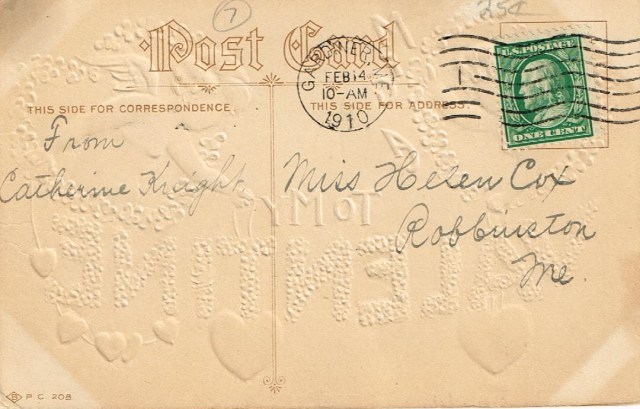 7
25¢
Post Card
GARDINER, ME.
FEB 14
10-AM
1910
U.S. POSTAGE
ONE CENT
THIS SIDE FOR CORRESPONDENCE.
THIS SIDE FOR ADDRESS.
From
Catherine Knight
Miss Helen Cox
Robbinston
Me.
TO MY
VALENTINE
P.C. 208